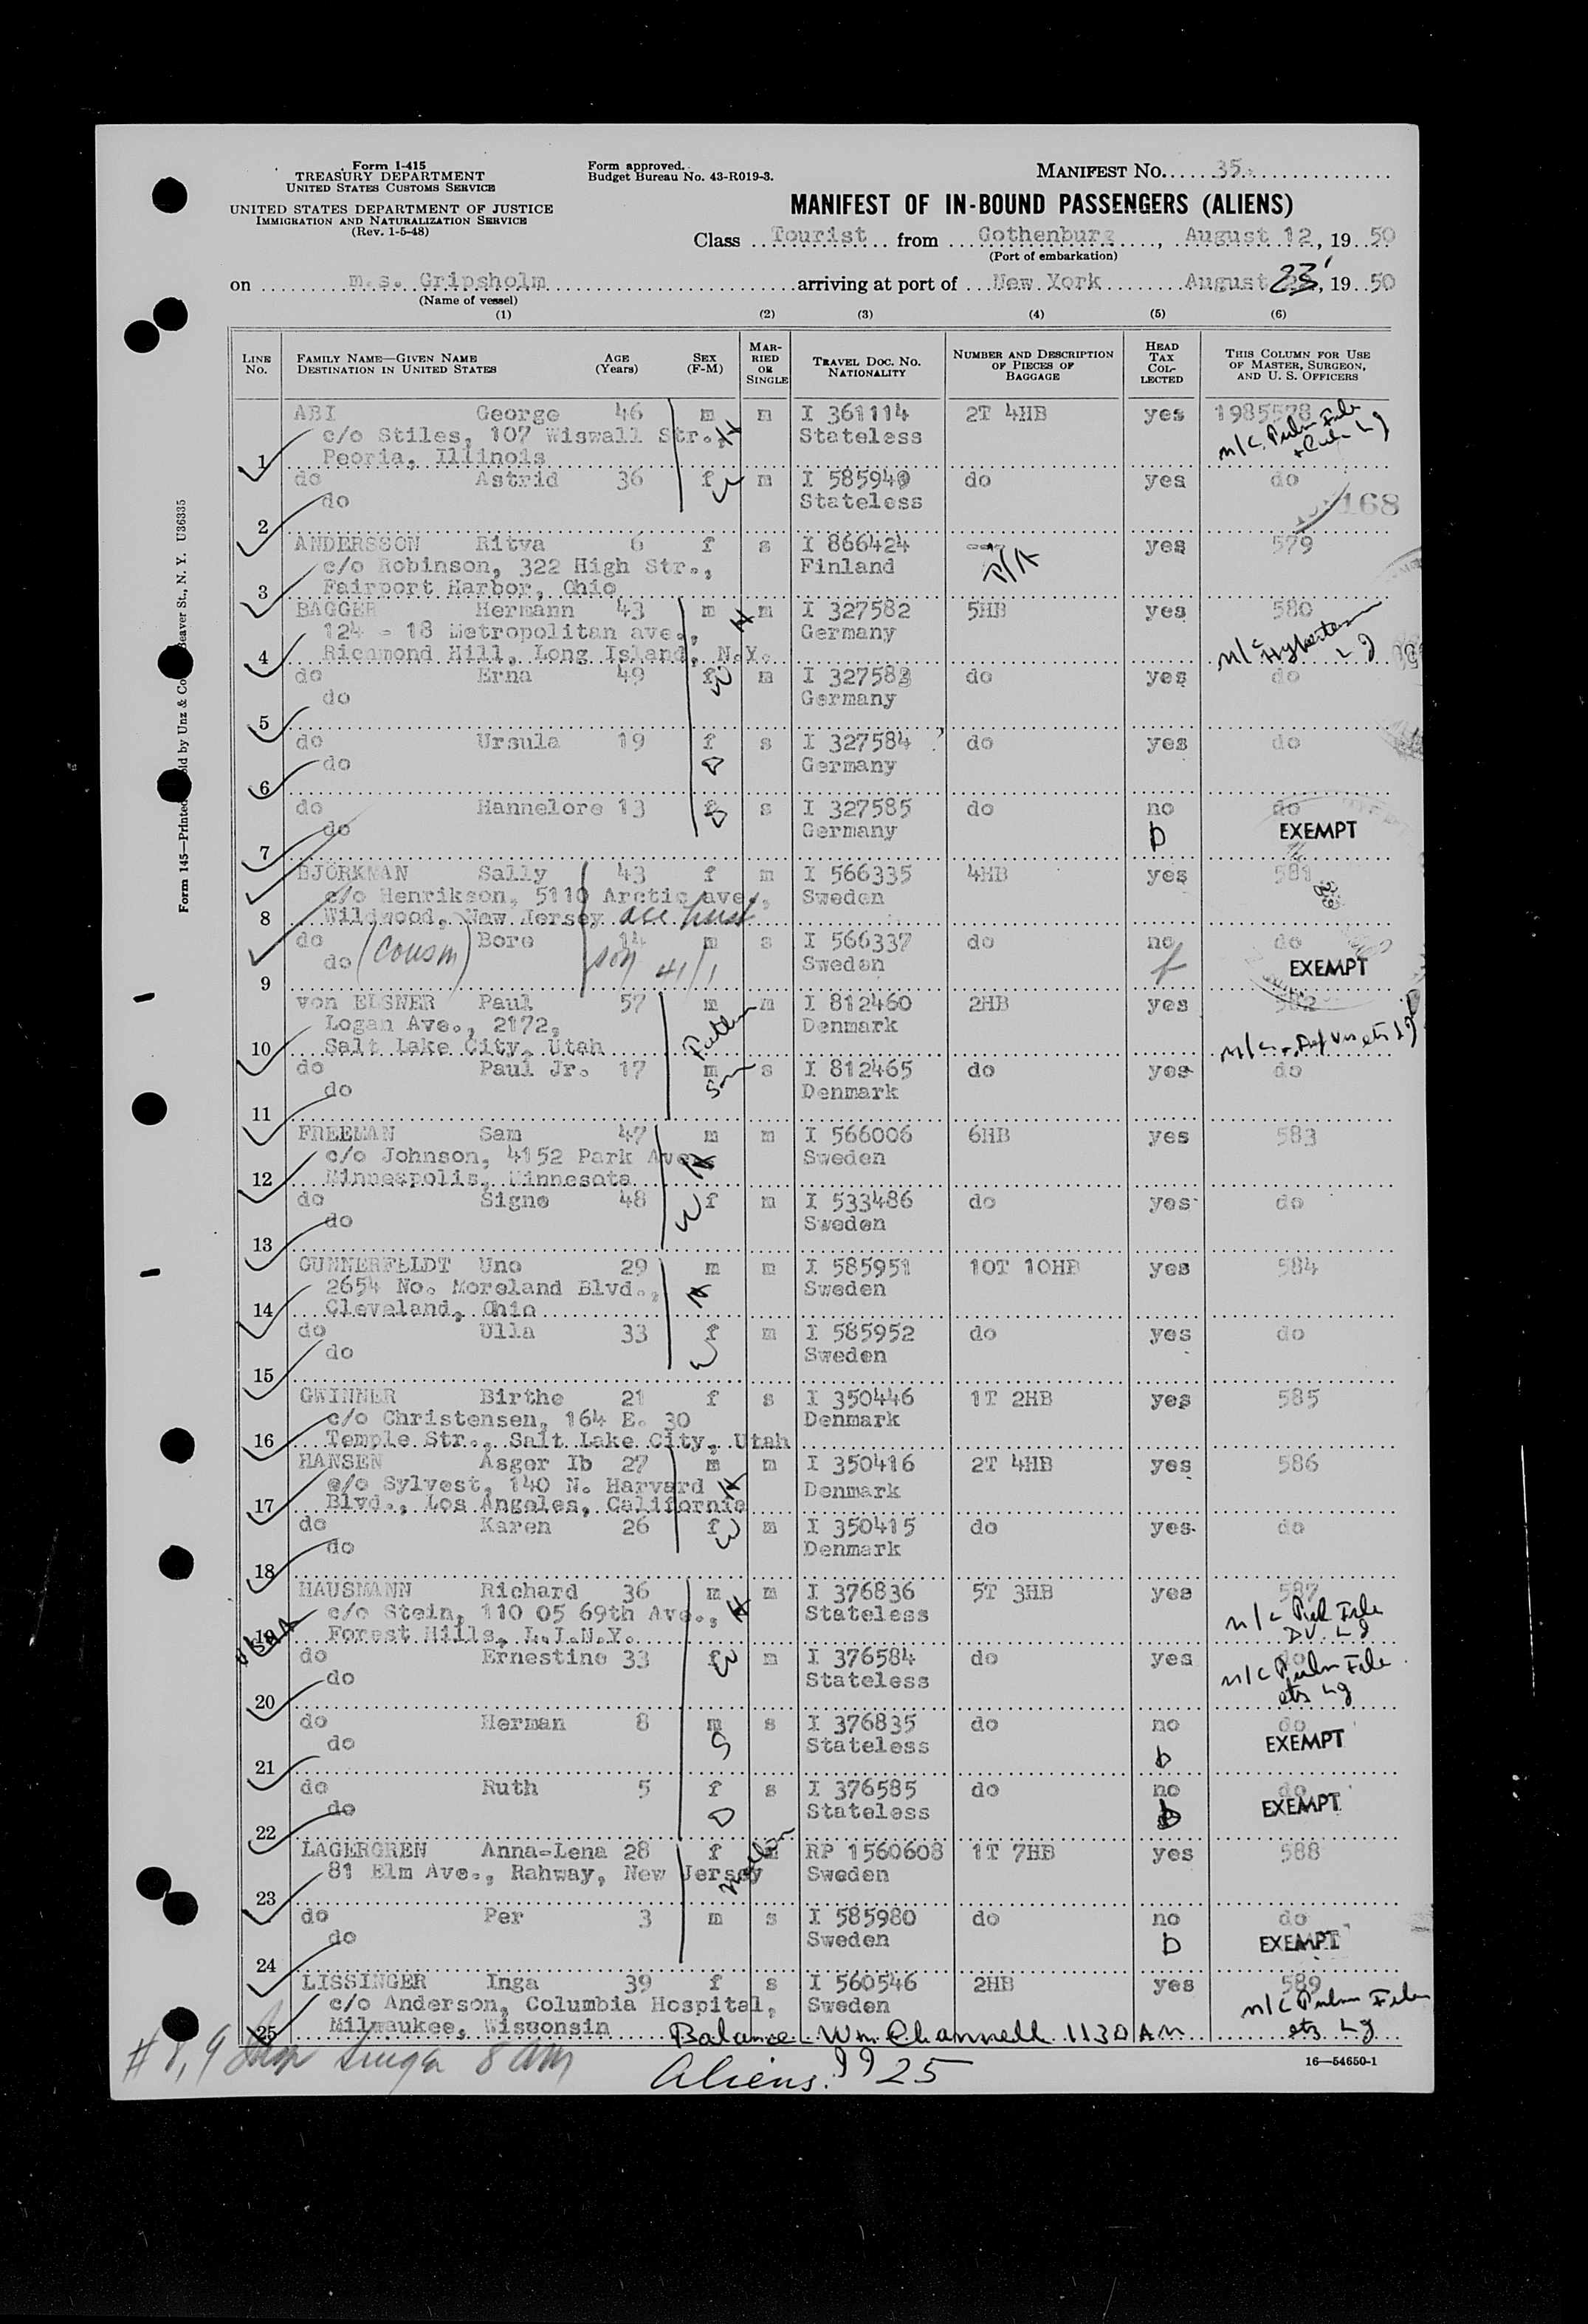 Form I-415
TREASURY DEPARTMENT
UNITED STATES CUSTOMS SERVICE
UNITED STATES DEPARTMENT OF JUSTICE
IMMIGRATION AND NATURALIZATION SERVICE
(Rev. 1-5-48)
Form approved.
Budget Bureau No. 43-R019-3.
MANIFEST No. 35.
MANIFEST OF IN-BOUND PASSENGERS (ALIENS)
Class Tourist from Gothenburg, August 12, 19 50
(Port of embarkation)
on m.s. Gripsholm arriving at port of New York August 23, 19 50
(Name of vessel)
(1) (2) (3) (4) (5) (6)
LINE No. FAMILY NAME—GIVEN NAME DESTINATION IN UNITED STATES AGE (Years) SEX (F-M) MARRIED OR SINGLE TRAVEL DOC. NO. NATIONALITY NUMBER AND DESCRIPTION OF PIECES OF BAGGAGE HEAD TAX COLLECTED THIS COLUMN FOR USE OF MASTER, SURGEON, AND U. S. OFFICERS
ABI George 46 m m I 361114 2T 4HB yes 1985578
c/o Stiles, 107 Wiswall Str., H Stateless
1 Peoria, Illinois
do Astrid 36 f m I 585940 do yes do
do W Stateless 168
2
ANDERSSON Ritva 6 f s I 866424 --- yes 579
c/o Robinson, 322 High Str., Finland P/A
3 Fairport Harbor, Ohio
BAGGER Hermann 43 m H m I 327582 5HB yes 580
124 - 18 Metropolitan ave., Germany
4 Richmond Hill, Long Island, N.Y.
do Erna 49 f m I 327583 do yes do
do W Germany
5
do Ursula 19 f s I 327584 do yes do
do D Germany
6
do Hannelore 13 f s I 327585 do no do
do D Germany EXEMPT
7
BJÖRKMAN Sally 43 f m I 566335 4HB yes 581
c/o Henrikson, 5110 Arctic ave., Sweden
8 Wildwood, New Jersey acc husb
do (cousin) Bore 14 m s I 566337 do no do
do son 41/1 Sweden EXEMPT
9
von ELSNER Paul 57 m m I 812460 2HB yes 582
Logan Ave., 2172, Father Denmark
10 Salt Lake City, Utah
do Paul Jr. 17 m s I 812465 do yes do
do Son Denmark
11
FREEMAN Sam 47 m m I 566006 6HB yes 583
c/o Johnson, 4152 Park Ave. H Sweden
12 Minneapolis, Minnesota
do Signe 48 f m I 533486 do yes do
do W Sweden
13
GUNNERFELDT Uno 29 m m I 585951 10T 10HB yes 584
2654 No. Moreland Blvd., H Sweden
14 Cleveland, Ohio
do Ulla 33 f m I 585952 do yes do
do W Sweden
15
GWINNER Birthe 21 f s I 350446 1T 2HB yes 585
c/o Christensen, 164 E. 30 Denmark
16 Temple Str., Salt Lake City, Utah
HANSEN Asger Ib 27 m m I 350416 2T 4HB yes 586
c/o Sylvest, 140 N. Harvard H Denmark
17 Blvd., Los Angeles, California
do Karen 26 f m I 350415 do yes do
do W Denmark
18
HAUSMANN Richard 36 m m I 376836 5T 3HB yes 587
c/o Stein, 110 05 69th Ave., H Stateless
19 Forest Hills, L.I.N.Y.
do Ernestine 33 f m I 376584 do yes do
do W Stateless
20
do Herman 8 m s I 376835 do no do
do S Stateless EXEMPT
21
do Ruth 5 f s I 376585 do no do
do D Stateless EXEMPT
22
LAGERGREN Anna-Lena 28 f m RP 1560608 1T 7HB yes 588
81 Elm Ave., Rahway, New Jersey Mother Sweden
23
do Per 3 m s I 585980 do no do
do Sweden EXEMPT
24
LISSINGER Inga 39 f s I 560546 2HB yes 589
c/o Anderson, Columbia Hospital, Sweden
25 Milwaukee, Wisconsin Balance Wm Channell 1130 AM
# 8, 9 8 am
Aliens: 25
16—54650-1
Form 145—Printed Sold by Unz & Co Beaver St., N. Y. U36335